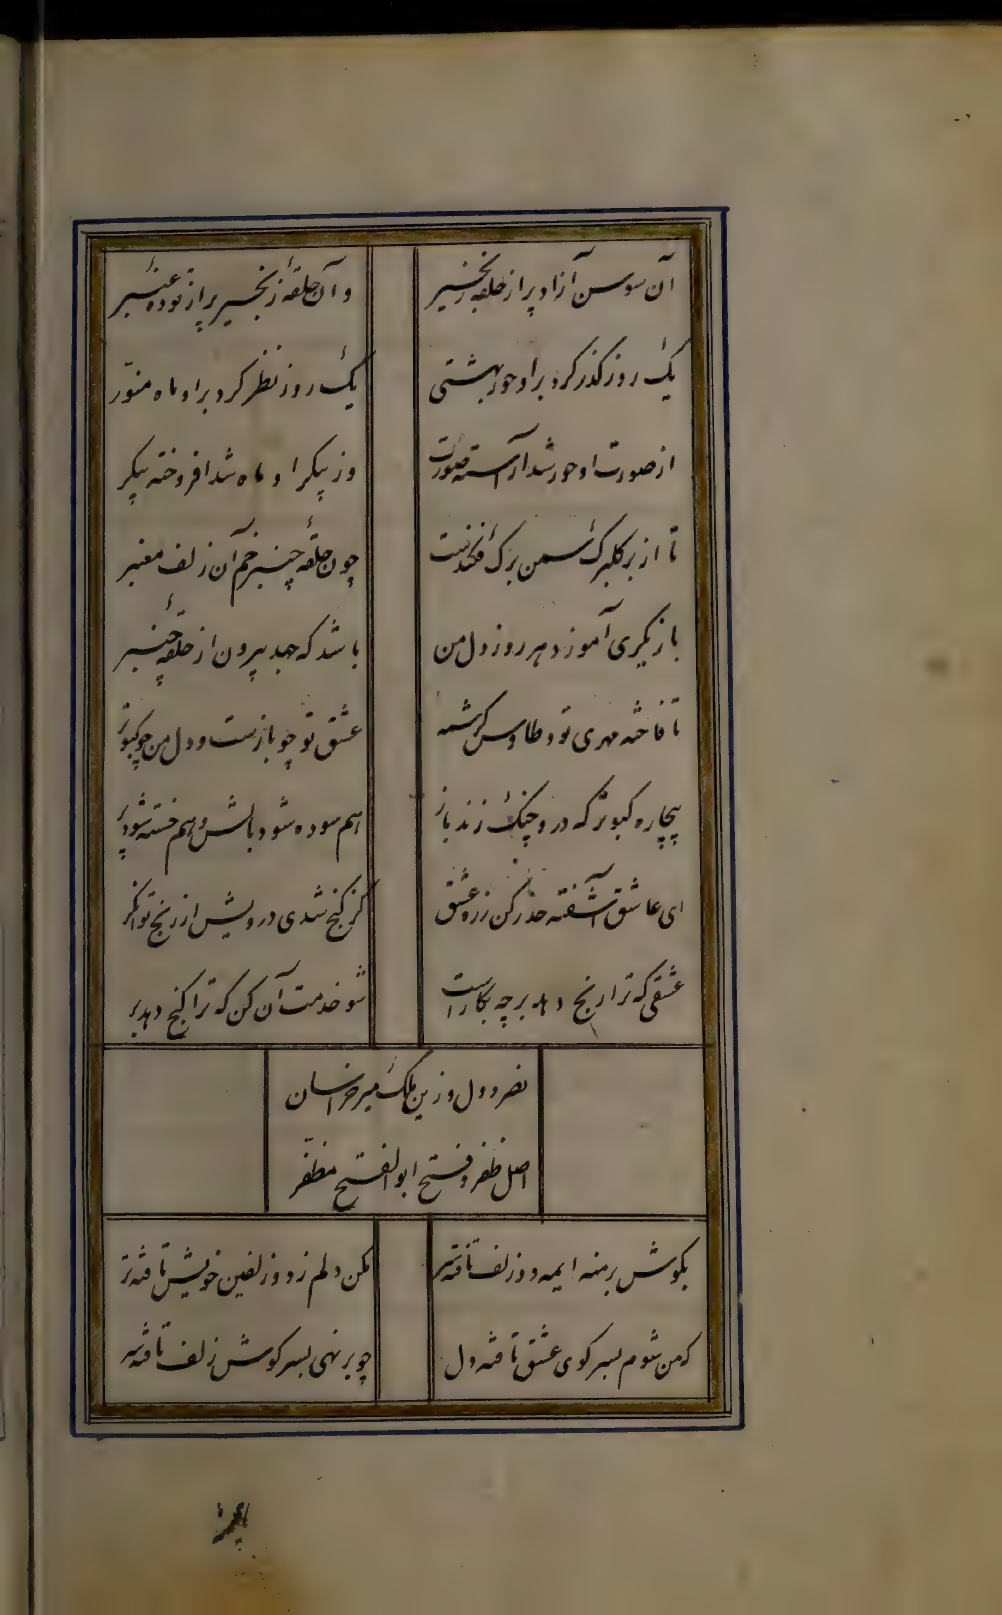 آن سوسن آزاد پر از حلقه زنجیر
وآن حلقه زنجیر پر از توده عنبر
یک روز گذر کرد بر او حور بهشتی
یک روز نظر کرد بر او ماه منوّر
از صورت او حور شد آراسته صورت
وز پیکر او ماه شد افروخته پیکر
تا از بر گلبرک سمن برک فکندست
چون حلقه چنبر خم آن زلف معنبر
بازیگری آموزد هر روز دل من
باشد که جهد بیرون از حلقه چنبر
تا فاخته مهری تو و طاوس کرشمه
عشق تو چو بازست و دل من چو کبوتر
بیچاره کبوتر که درو چنک زند باز
هم سوده شود بالش و هم خسته شود پر
ای عاشق آشفته حذر کن ز ره عشق
کز کنج شدی درویش از رنج توانکر
عشقی که ترا رنج دهد بر چه بکار است
شو خدمت آن کن که ترا کنج دهد بر
نصر دول و زین ملک میر خراسان
اصل ظفر و فتح ابو الفتح مظفّر
بکوش بر منه ایمه دو زلف تافته سر
مکن دلم ز دو زلفین خویش تافته تر
که من شوم بسر کوی عشق تافته دل
چو بر نهی بسر کوش زلف تافته سر